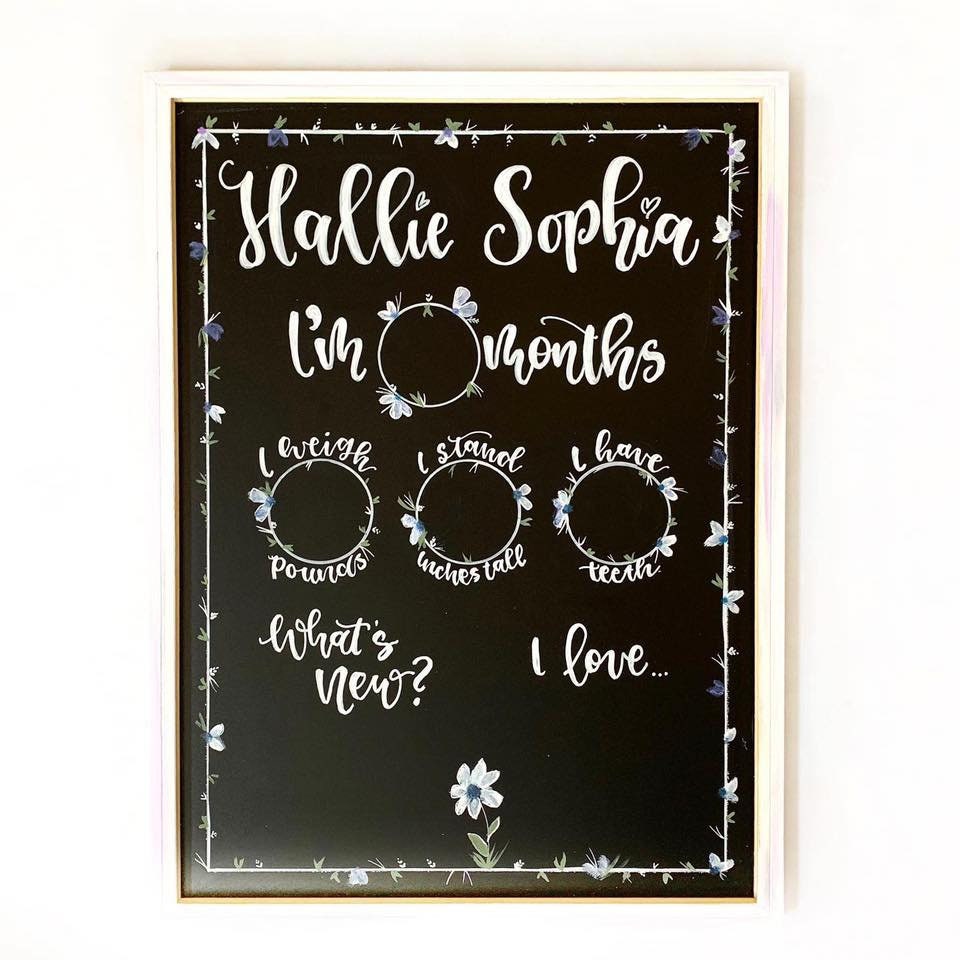 Hallie Sophia
I'm months
I weigh
pounds
I stand
inches tall
I have
teeth
What's
new?
I love...